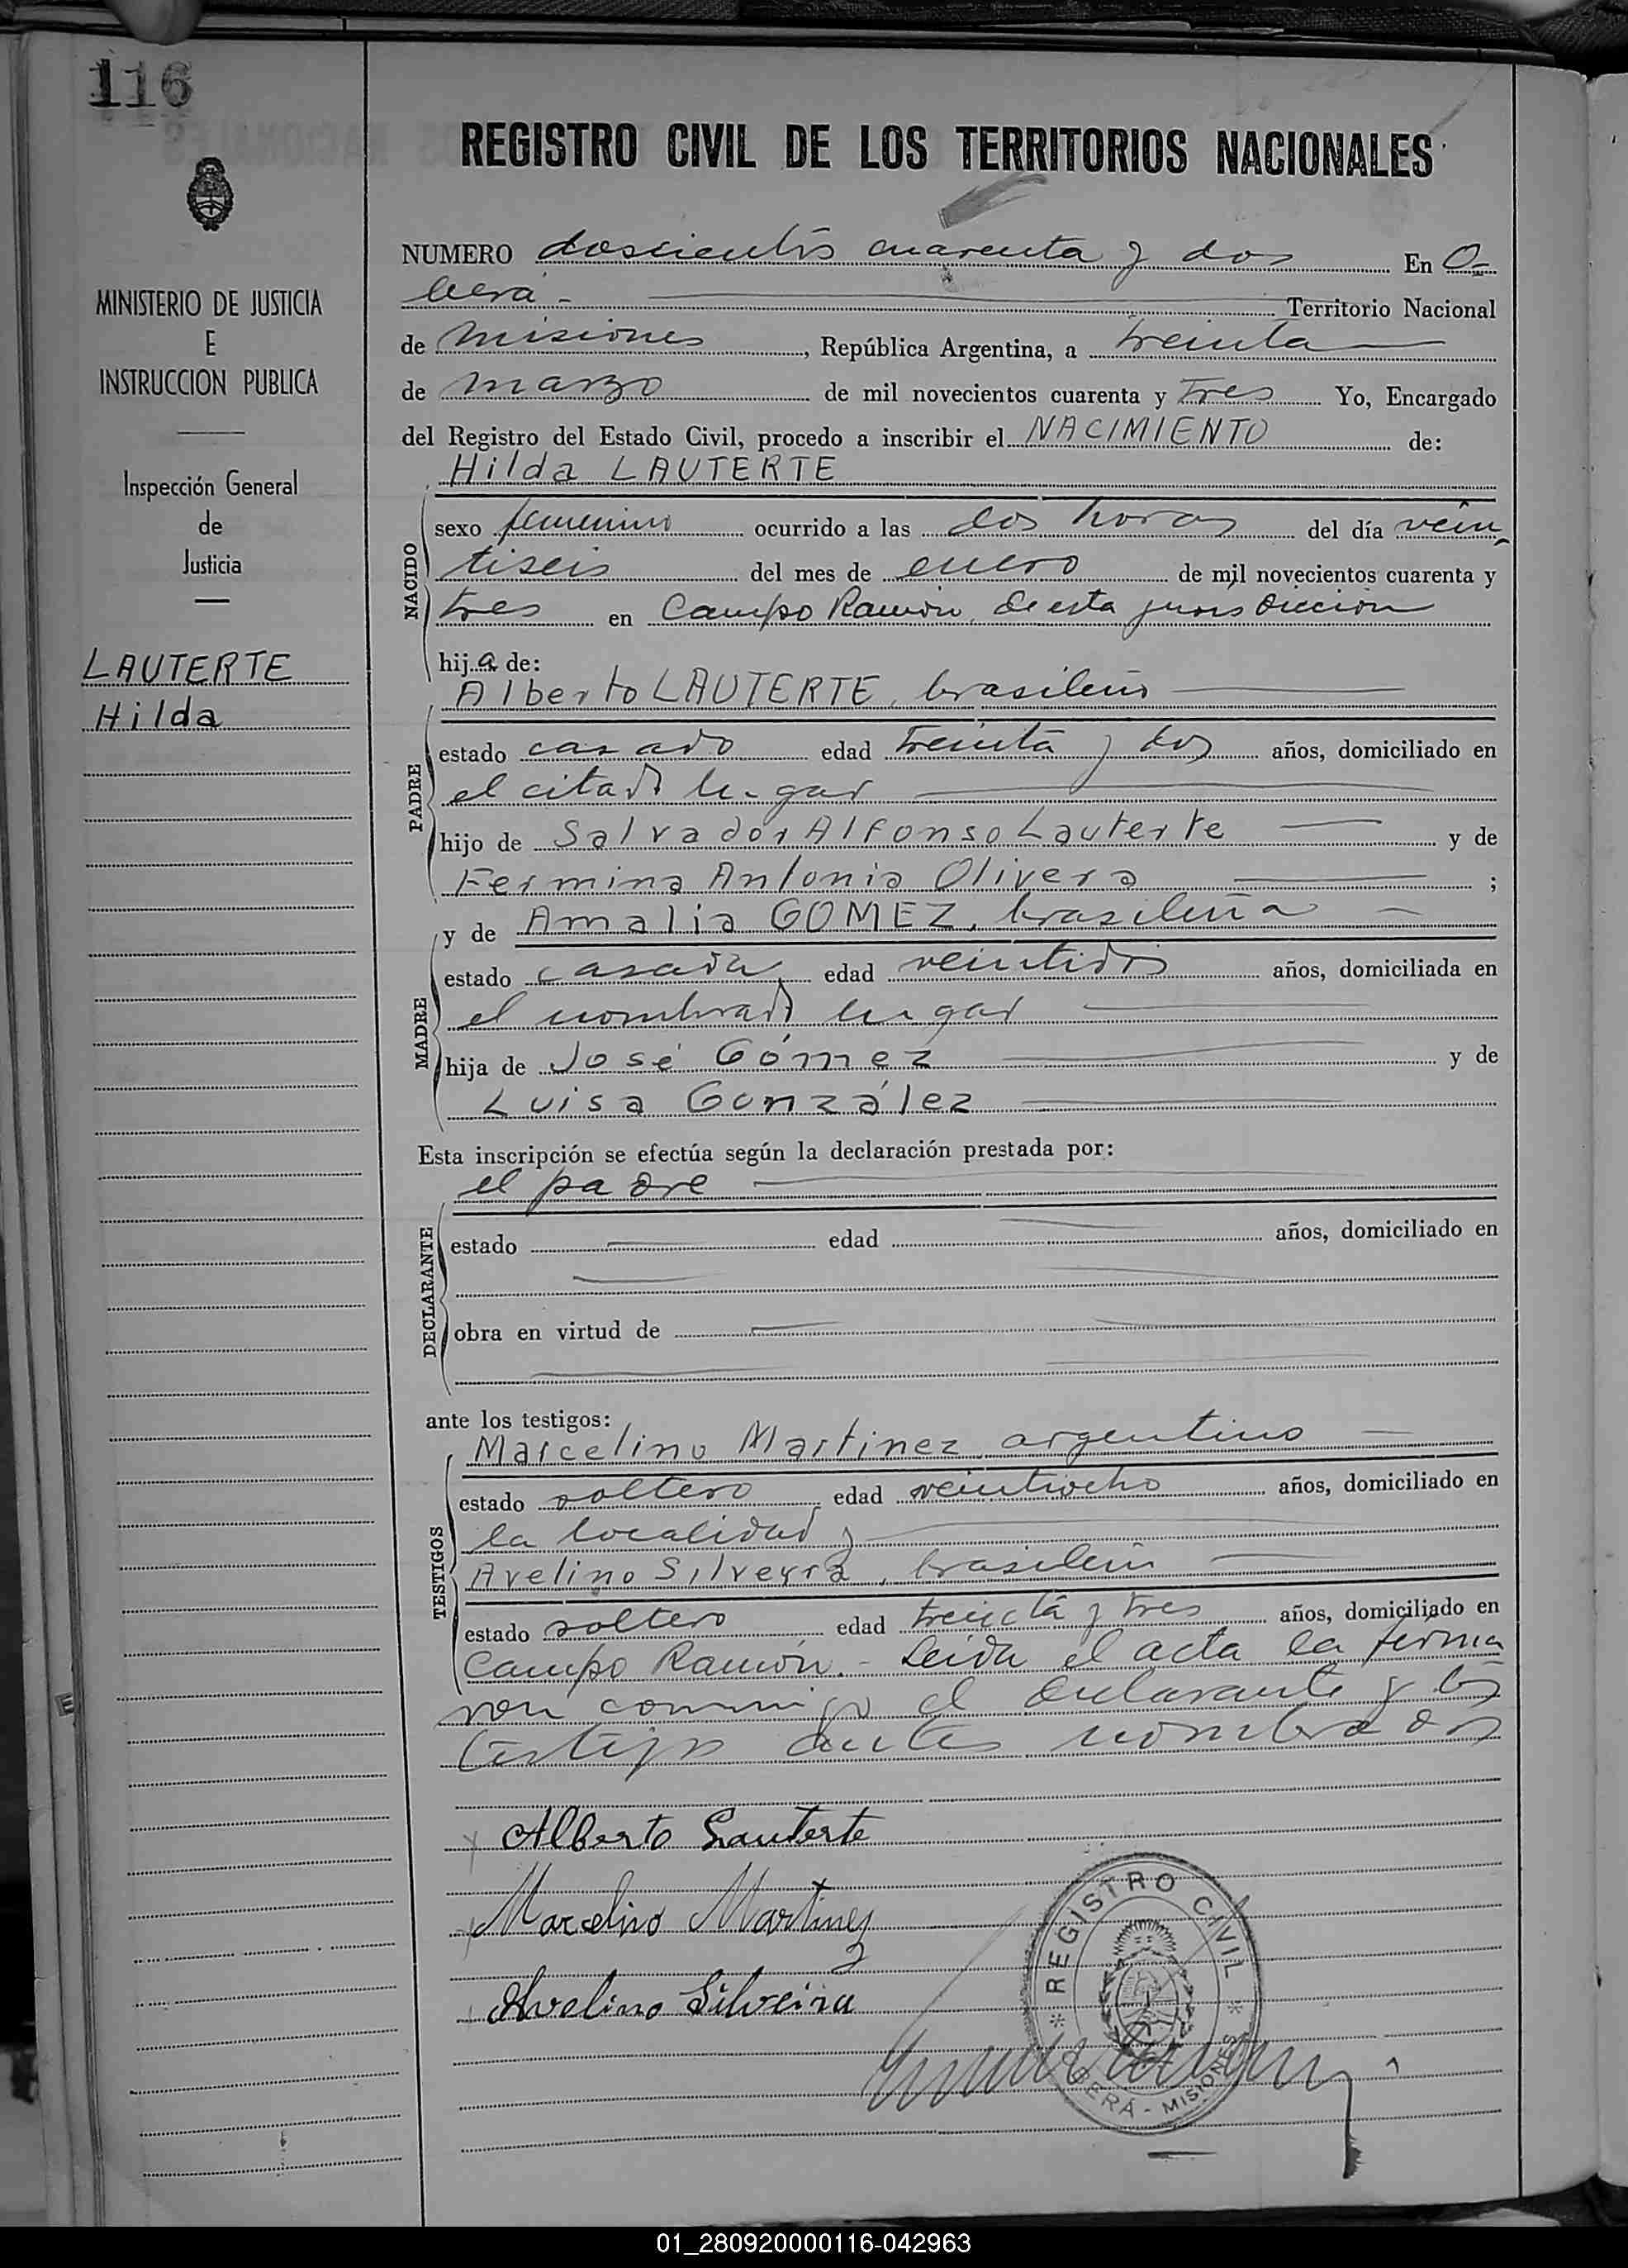 116
REGISTRO CIVIL DE LOS TERRITORIOS NACIONALES
MINISTERIO DE JUSTICIA
E
INSTRUCCION PUBLICA
Inspección General
de
Justicia
LAUTERTE
Hilda
NUMERO doscientos cuarenta y dos En O-
berá - Territorio Nacional
de Misiones, República Argentina, a treinta
de marzo de mil novecientos cuarenta y tres Yo, Encargado
del Registro del Estado Civil, procedo a inscribir el NACIMIENTO de:
Hilda LAUTERTE
NACIDO
sexo femenino ocurrido a las dos horas del día vein-
tiseis del mes de enero de mil novecientos cuarenta y
tres en Campo Ramón, de esta jurisdicción
hija de:
Alberto LAUTERTE, brasileño
PADRE
estado casado edad treinta y dos años, domiciliado en
el citado lugar
hijo de Salvador Alfonso Lauterte y de
Fermina Antonia Olivera ;
y de Amalia GOMEZ, brasileña
MADRE
estado casada edad veintidos años, domiciliada en
el nombrado lugar
hija de José Gómez y de
Luisa González
Esta inscripción se efectúa según la declaración prestada por:
el padre
DECLARANTE
estado edad años, domiciliado en
obra en virtud de
ante los testigos:
Marcelino Martinez, argentino
TESTIGOS
estado soltero edad veintiocho años, domiciliado en
la localidad y
Avelino Silveyra, brasileño
estado soltero edad treinta y tres años, domiciliado en
Campo Ramón.- Leida el acta la firma
ron conmigo el declarante y los
testigos antes nombrados
Alberto Lauterte
Marcelino Martinez
Avelino Silveira
REGISTRO CIVIL
OBERÁ - MISIONES
01_280920000116-042963